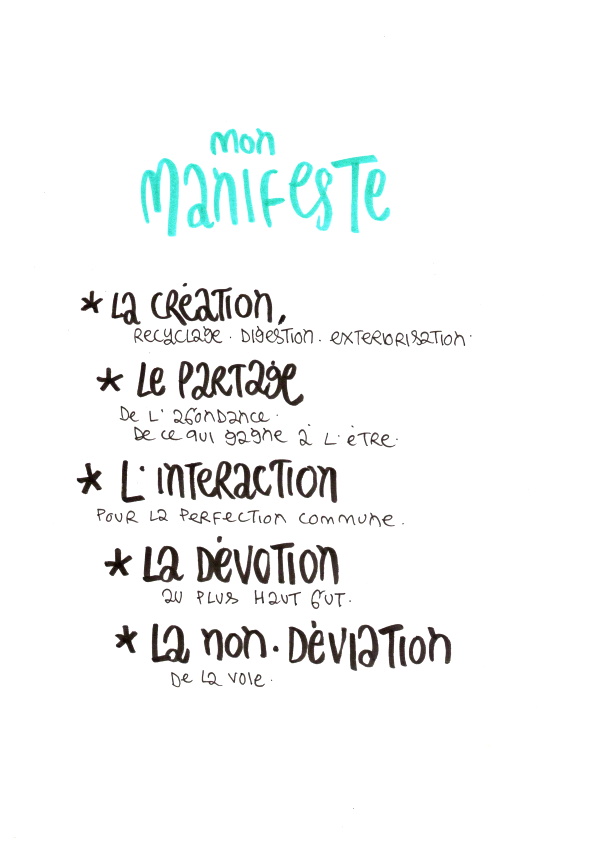 mon
manifeste
* La création,
recyclage. digestion. exteriorisation.
* Le partage
De l'abondance.
De ce qui gagne à l'être.
* L'interaction
pour la perfection commune.
* La dévotion
au plus haut but.
* La non-déviation
De la voie.